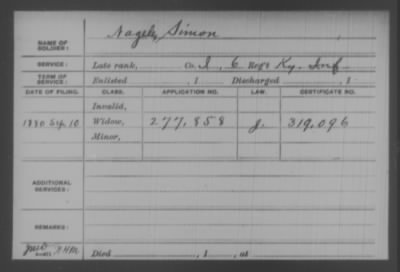 Nagele, Simon
NAME OF SOLDIER:
SERVICE: Late rank, Co. I, 6 Reg't Ky. Inf.
TERM OF SERVICE: Enlisted , 1 Discharged , 1
DATE OF FILING. CLASS. APPLICATION NO. LAW. CERTIFICATE NO.
Invalid,
1880 Sep. 10 Widow, 277,858 J. 319,096
Minor,
ADDITIONAL SERVICES:
REMARKS:
Died , 1 , at